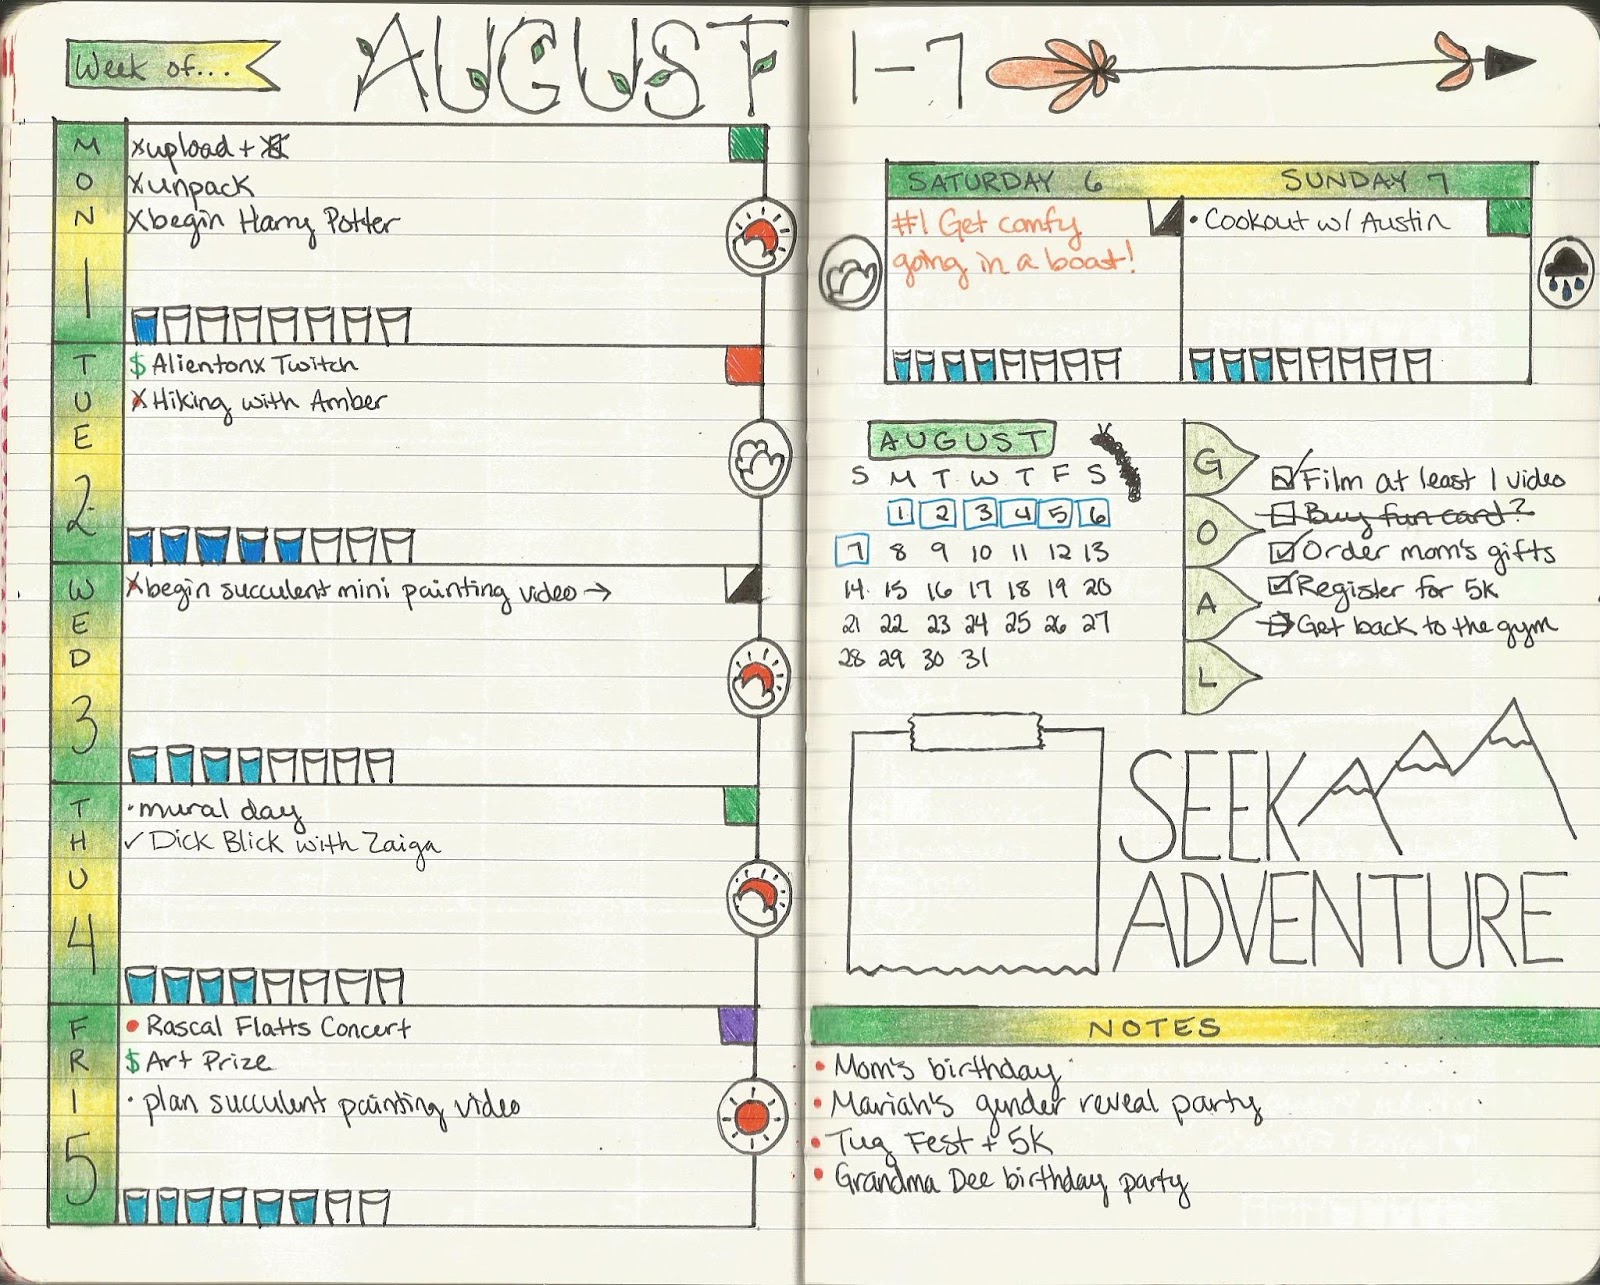 Week of...
AUGUST 1-7
MON 1
x upload +
x unpack
x begin Harry Potter
TUE 2
$ Alientonx Twitch
x Hiking with Amber
WED 3
x begin succulent mini painting video →
THU 4
· mural day
✓ Dick Blick with Zaiga
FRI 5
• Rascal Flatts Concert
$ Art Prize
· plan succulent painting video
SATURDAY 6
#1 Get comfy
going in a boast!
SUNDAY 7
• Cookout w/ Austin
AUGUST
S M T W T F S
1 2 3 4 5 6
7 8 9 10 11 12 13
14 15 16 17 18 19 20
21 22 23 24 25 26 27
28 29 30 31
GOAL
Film at least 1 video
Buy fun card?
Order mom's gifts
Register for 5k
Get back to the gym
SEEK
ADVENTURE
NOTES
• Mom's birthday
• Mariah's gynder reveal party
• Tug Fest + 5K
• Grandma Dee birthday party